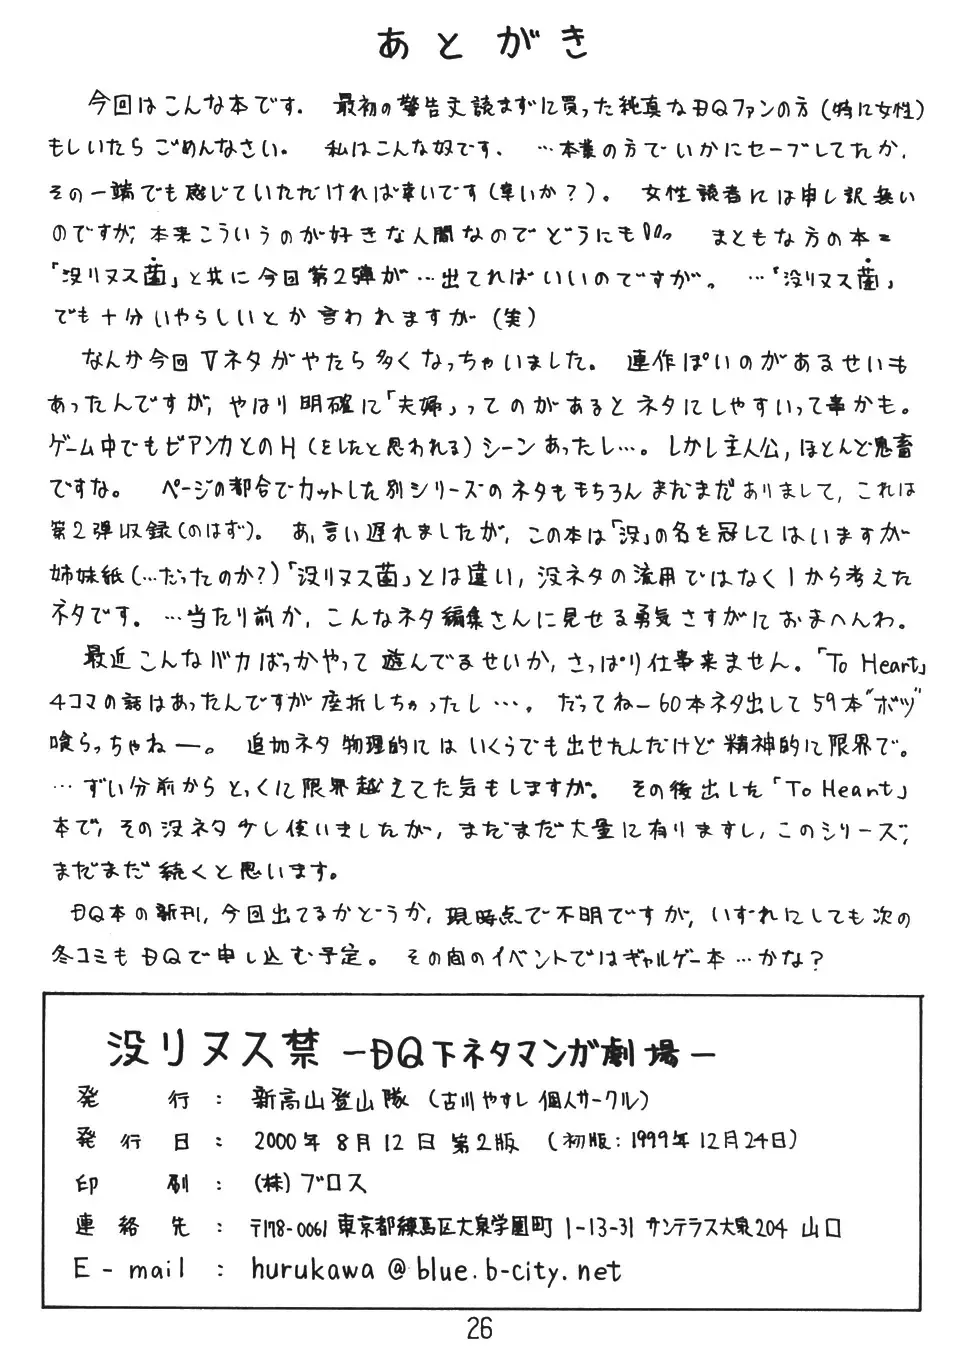 あとがき
今回はこんな本です。 最初の警告文読まずに買った純真なDQファンの方(特に女性)
もしいたらごめんなさい。 私はこんな奴です、 …本業の方でいかにセーブしてたか、
その一端でも感じていただければ幸いです(幸いか?)。 女性読者には申し訳無い
のですが、本来こういうのが好きな人間なのでどうにも。 まともな方の本=
「没リヌス菌」と共に今回第2弾が…出てればいいのですが。 …「没リヌス菌」
でも十分いやらしいとか言われますが(笑)
なんか今回Ⅴネタがやたら多くなっちゃいました。 連作ぽいのがあるせいも
あったんですが、やはり明確に「夫婦」ってのがあるとネタにしやすいって事かも。
ゲーム中でもビアンカとのH(をしたと思われる)シーンあったし…。しかし主人公,ほとんど鬼畜
ですな。 ページの都合でカットした別シリーズのネタももちろんまだまだありまして,これは
第2弾収録(のはず)。 あ,言い遅れましたが,この本は「没」の名を冠してはいますが
姉妹紙(…だったのか?)「没リヌス菌」とは違い,没ネタの流用ではなく1から考えた
ネタです。 …当たり前か,こんなネタ編集さんに見せる勇気さすがにおまへんわ。
最近こんなバカばっかやって遊んでるせいか,さっぱり仕事来ません。「To Heart」
4コマの話はあったんですが座折しちゃったし…。 だってねー60本ネタ出して59本"ボツ"
喰らっちゃねー。 追加ネタ物理的にはいくらでも出せたんだけど精神的に限界で。
…ずい分前からとっくに限界越えてた気もしますが。 その後出した「To Heart」
本で,その没ネタ少し使いましたが,まだまだ大量に有りますし,このシリーズ,
まだまだ続くと思います。
DQ本の新刊,今回出てるかどうか,現時点で不明ですが,いずれにしても次の
冬コミもDQで申し込む予定。 その向のイベントではギャルゲー本…かな?
没リヌス禁 ーDQ下ネタマンガ劇場ー
発行:新高山登山隊 (古川やすし個人サークル)
発行日:2000年8月12日 第2版 (初版:1999年12月24日)
印刷:(株)ブロス
連絡先:〒178-0061 東京都練馬区大泉学園町1-13-31 サンテラス大泉204 山口
E-mail:hurukawa@blue.b-city.net
26